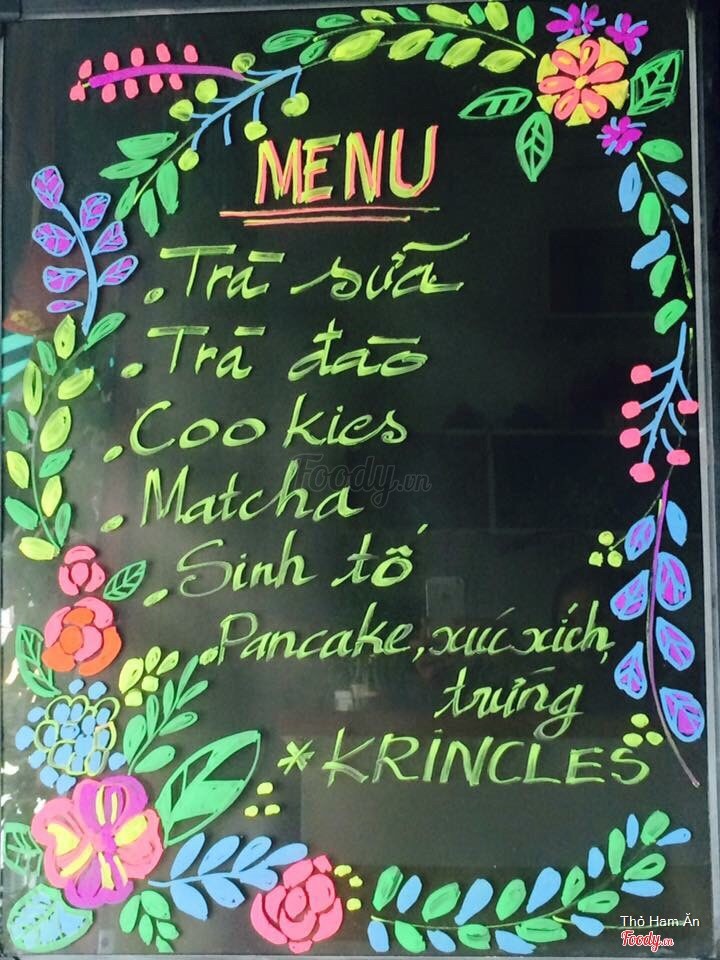 MENU
. Trà sữa
. Trà đào
. Cookies
. Matcha
. Sinh tố
. Pancake, xúc xích,
trứng
* KRINCLES
Foody.vn
Thỏ Ham Ăn
Foody.vn